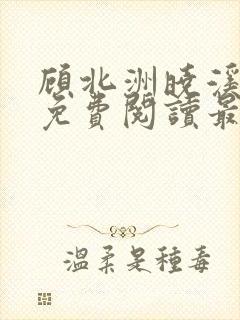 顾北洲晓溪
免費閱讀最
温柔是種毒